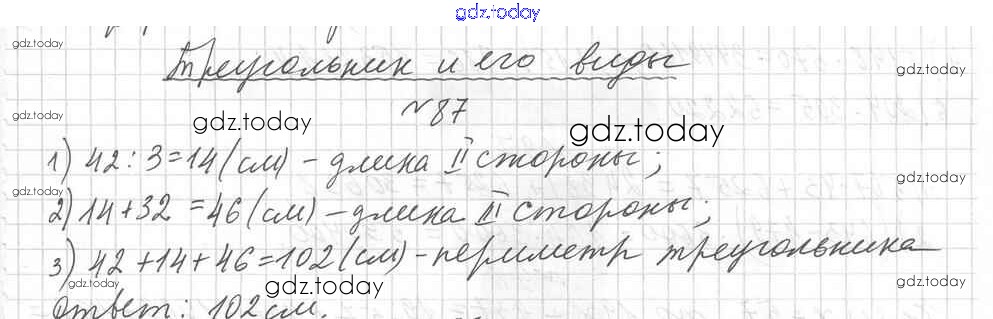 gdz.today
gdz.today
Треугольник и его виды
gdz.today
№87
gdz.today
gdz.today
gdz.today
1) 42 : 3 = 14 (см) - длина II стороны;
gdz.today
gdz.today
2) 14 + 32 = 46 (см) - длина III стороны;
3) 42 + 14 + 46 = 102 (см) - периметр треугольника
gdz.today
gdz.today
gdz.today
Ответ: 102 см.